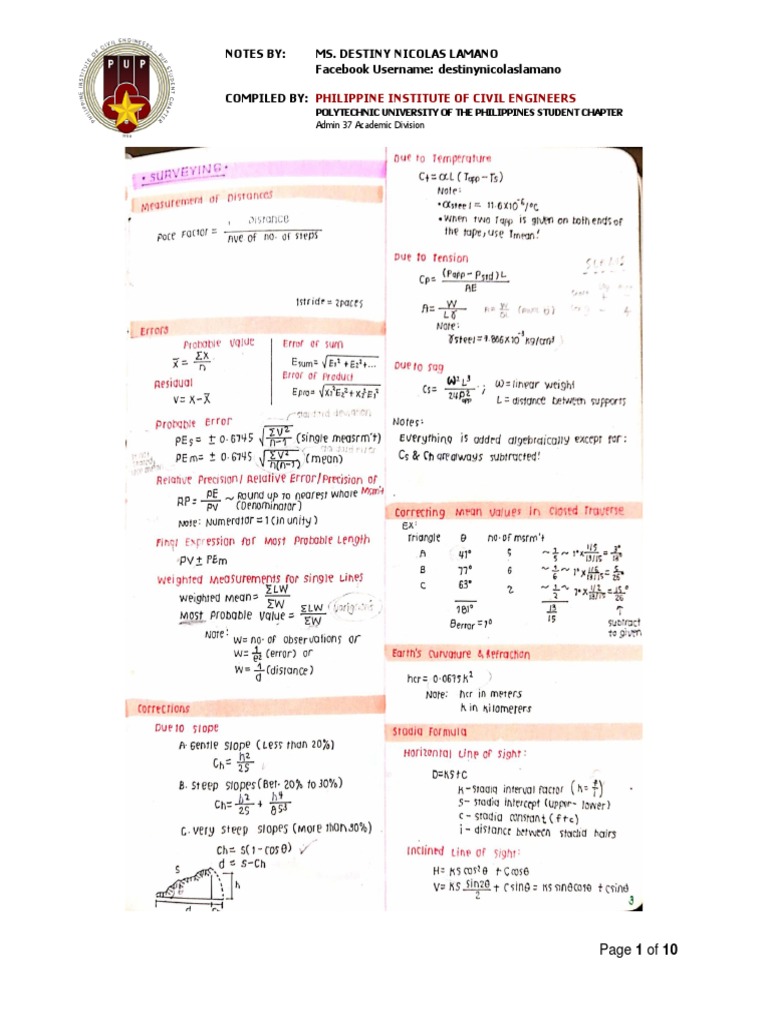 NOTES BY: MS. DESTINY NICOLAS LAMANO
Facebook Username: destinynicolaslamano
COMPILED BY: PHILIPPINE INSTITUTE OF CIVIL ENGINEERS
POLYTECHNIC UNIVERSITY OF THE PHILIPPINES STUDENT CHAPTER
Admin 37 Academic Division
PUP
• SURVEYING •
Measurement of Distances
Pace Factor = Distance / Ave of no. of steps
1stride = 2paces
Errors
Probable Value
x̄ = Σx / n
Residual
V = X - X̄
Error of sum
Esum = √E₁² + E₂² + ...
Error of Product
Epro = √X₁²E₂² + X₂²E₁²
Probable Error
PEs = ± 0.6745 √ΣV² / n-1 (single measrm't)
PEm = ± 0.6745 √ΣV² / n(n-1) (mean)
Relative Precision/ Relative Error/Precision of Msm't
RP = PE / PV ~ Round up to nearest whole (Denominator)
Note: Numerator = 1 (in unity)
Final Expression for Most Probable Length
PV ± PEm
Weighted Measurements for Single Lines
Weighted Mean = ΣLW / ΣW
Most Probable Value = ΣLW / ΣW
Note: W = no. of observations or
W = 1 / e² (error) or
W = 1 / d (distance)
Corrections
Due to slope
A. Gentle slope (Less than 20%)
Ch = h² / 2S
B. Steep slopes (Bet. 20% to 30%)
Ch = h² / 2S + h⁴ / 8S³
C. Very steep slopes (More than 30%)
Ch = S(1 - cosθ)
d = S - Ch
S
h
d
Due to Temperature
Ct = αL (Tapp - Ts)
Note:
• αsteel = 11.6x10⁻⁶/°C
• When two Tapp is given on both ends of
the tape, use Tmean!
Due to Tension
Cp = (Papp - Pstd) L / AE
A = W / Lγ
Note:
γsteel = 7.866x10⁻³ kg/cm³
Due to sag
Cs = W²L³ / 24P²app ; W = linear weight
L = distance between supports
Notes:
Everything is added algebraically except for:
Cs & Ch are always subtracted!
Correcting Mean Values in Closed Traverse
EX:
Triangle θ no. of msrm't
A 41° 5 ~ 1/5 ~ 1° x 1/5 / 13/15 = 3° / 13
B 77° 6 ~ 1/6 ~ 1° x 1/6 / 13/15 = 5 / 26
C 63° 2 ~ 1/2 ~ 1° x 1/2 / 13/15 = 15° / 26
181° 13 / 15
θerror = 1°
subtract
to given
Earth's Curvature & Refraction
hcr = 0.0675K²
Note: hcr in meters
K in kilometers
Stadia Formula
Horizontal Line of Sight:
D = KS + C
K - stadia interval factor
S - stadia intercept (upper - lower)
C - stadia constant (f+c)
i - distance between stadia hairs
Inclined Line of Sight:
H = KS cos²θ + Ccosθ
V = KS sin2θ / 2 + Csinθ = KS sinθcosθ + Csinθ
3
Page 1 of 10